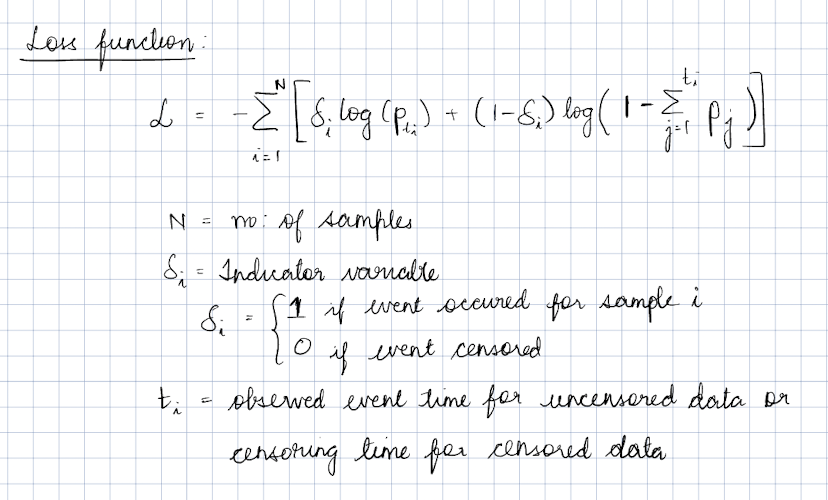 Loss function:
ℒ = -∑_{i=1}^{N} [δ_i log(p_{t_i}) + (1-δ_i) log(1 - ∑_{j=1}^{t_i} p_j)]
N = no: of samples
δ_i = Indicator variable
δ_i = { 1 if event occured for sample i
0 if event censored
t_i = observed event time for uncensored data or
censoring time for censored data